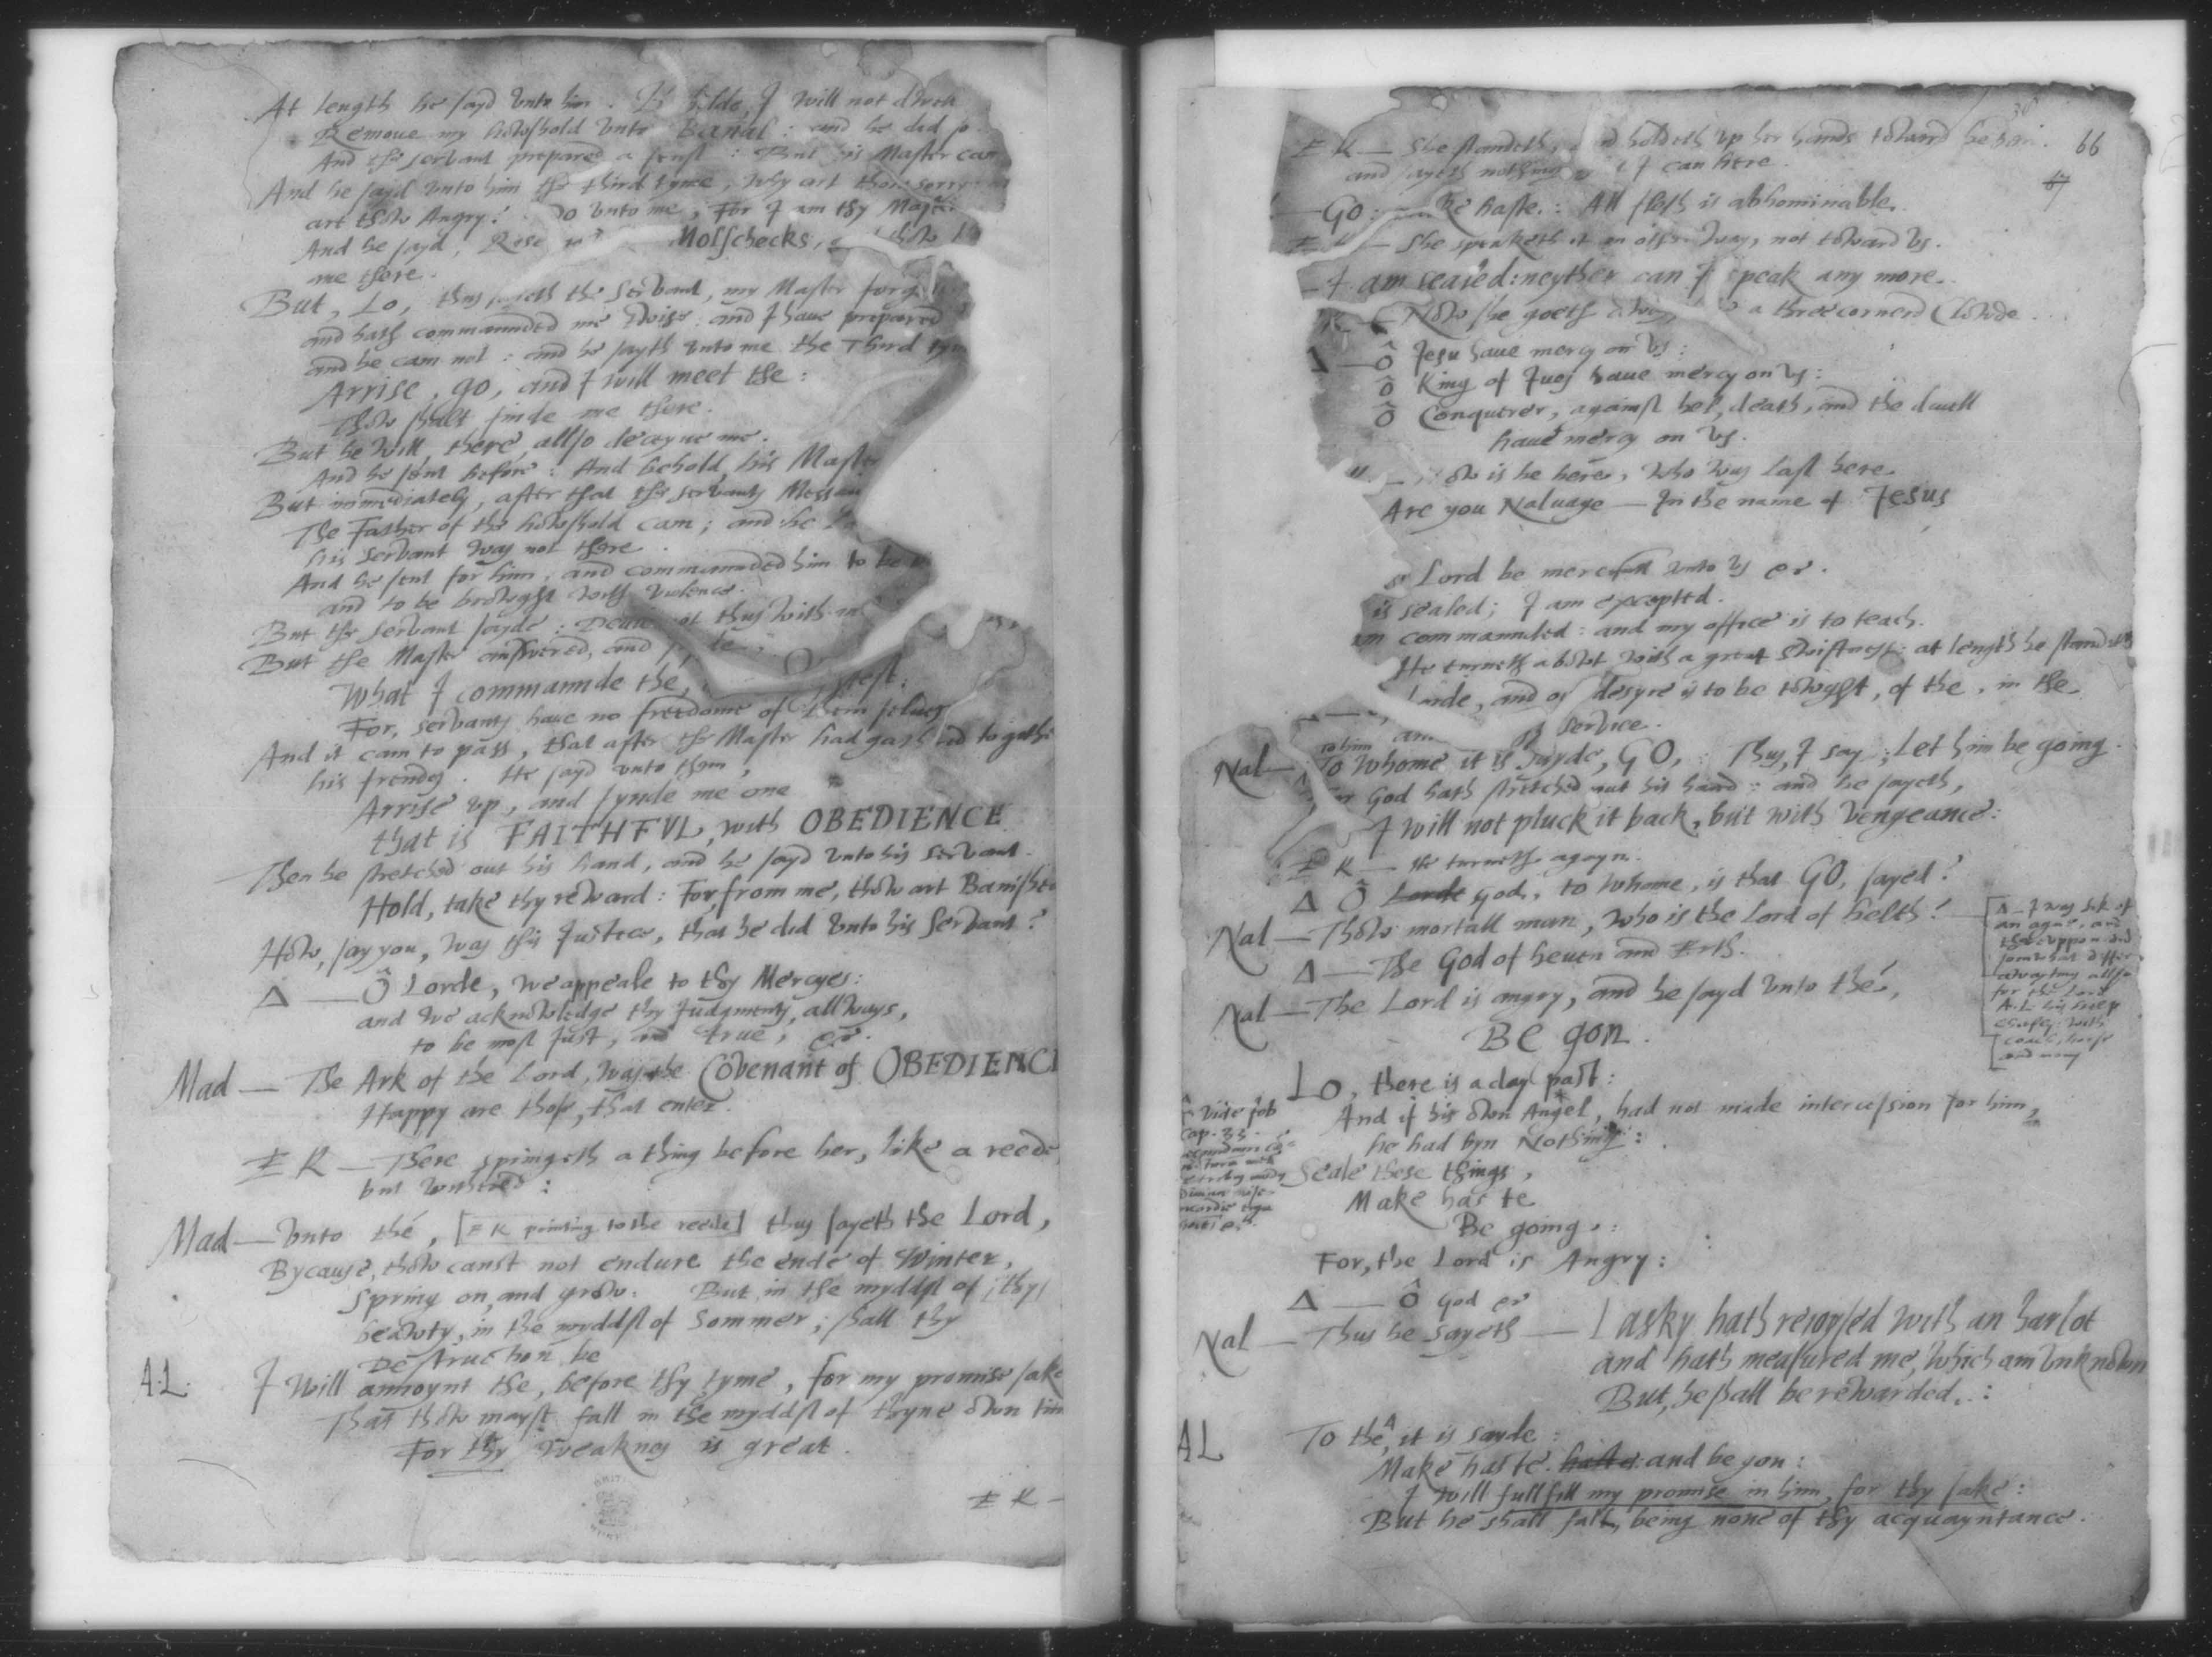 At length he sayd unto him. I will not dwell
Remoue my howshold unto Banal: and he did so.
And the servant prepared a feast: But his Master cam
And he sayd unto him the third tyme, why art thow sorry
art thow Angry? unto me, For I am thy Master
And he sayd, Rise Molschecks, thow
me there.
But, Lo, thus sayeth the Servant, my Master
and hath commaunded me twise: and I haue prepared
and he cam not: and he sayth unto me the Third tyme
Arrise, go, and I will meet the:
Thow shalt finde me there.
But he will, there, allso deceyue me.
And he sent before: And behold, his Master
But immediately, after that the servants
The Father of the howshold cam; and he
his Servant was not there.
And he sent for him, and commaunded him to be
and to be browght with violence.
But the Servant sayde: not thus with me
But the Master answered, and
What I commaunde the,
For, servants haue no freedome of them selues
And it cam to pass, that after the Master had gathered to gether
his frendes. He sayd unto them,
Arrise up, and fynde me one
that is FAITHFVL, with OBEDIENCE
Then he stretched out his hand, and he sayd unto his servant.
Hold, take thy reward: For, from me, thow art Banished
How, say you, was this Justice, that he did unto his Servant?
Δ — Ô Lorde, we appeale to thy Mercyes:
and we acknowledge thy Judgments, allways,
to be most Just, and true, &c.
Mad — The Ark of the Lord, was the Covenant of OBEDIENCE
Happy are those, that enter.
E K — There springeth a thing before her, like a reede
but withered:
Mad — Unto thé, [E K pointing to the reede] thus sayeth the Lord,
Bycause, thow canst not endure the ende of Winter,
Spring on, and grow. But in the myddst of [thy]
beawty, in the myddst of Sommer, shall thy
Destruction be
A.L. I will annoynt the, before thy tyme, for my promise sake
That thow mayst fall in the myddst of thyne own time
For thy weaknes is great.
E K —
66
E K — She standeth, and holdeth up her hands toward heven.
and sayeth nothing I can here.
Go: make haste: All flesh is abhominable.
E K — She speaketh it an other way, not toward us.
I am sealed: neyther can I speak any more.
E K — Now she goeth away, a three cornerd Clowde.
Δ — Ô Jesu haue mercy on us:
ô King of Jues haue mercy on us:
Ô Conquerer, against hel, death, and the diuell
haue mercy on us.
Now is he here, who was last here.
Are you Naluage — In the name of Jesus
Lord be mercifull unto us &c.
is sealed; I am excepted.
am commaunded: and my office is to teach.
He turneth abowt with a great swiftnes: at length he standeth
Lorde, and our desyre is to be towght, of the, in the
service.
Nal — To Whome it is sayde, GO, : Thus, I say, Let him be going.
For God hath stretched out his hand: and he sayeth,
I will not pluck it back, but with vengeance:
E K — He turneth agayn.
Δ Ô Lorde God, to whome, is that GO, sayed?
Nal — Thow mortall man, who is the Lord of helth?
Δ — The God of heuen and Erth.
Nal — The Lord is angry, and he sayd unto thé,
Be gon.
Δ — I was sik of
an ague, and
theruppon did
somwhat differ
allso
for the Lord
A.L. his help
chiefly with
coach, horse
and mony
Lo, there is a day past:
And if his own Angel, had not made intercession for him,
he had byn Nothing:
Vide Job
Cap. 33.
Seale these things,
Make haste
Be going:
For, the Lord is Angry:
Δ — Ô God &c
Nal — Thus he sayeth — Lasky hath reioysed with an harlot
and hath measured me, which am unknown
But, he shall be rewarded:
AL To the, it is sayde:
Make haste haste and be gon:
I will fullfill my promise in him, for thy sake:
But he shall fall, being none of thy acquayntance.